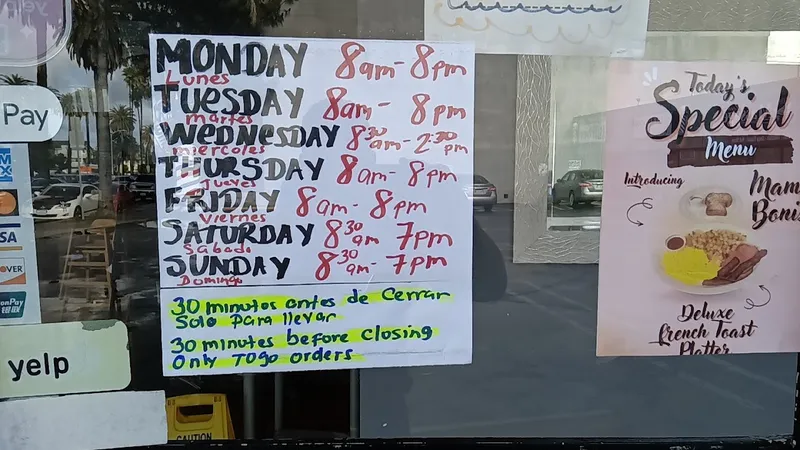 MONDAY 8am - 8pm
Lunes
TUESDAY 8am - 8pm
martes
WEDNESDAY 830am - 2:30pm
miercoles
THURSDAY 8am - 8pm
Jueves
FRIDAY 8am - 8pm
Viernes
SATURDAY 830am 7pm
Sabado
SUNDAY 830am - 7pm
Domingo
30 minutos antes de Cerrar
Solo Para llevar
30 minutes before closing
Only TOgo orders
Pay
VISA
OVER
onPay
yelp
CAUTION
Today's
Special
Menu
Introducing
Mam
Boni
Deluxe
French Toast
Platter